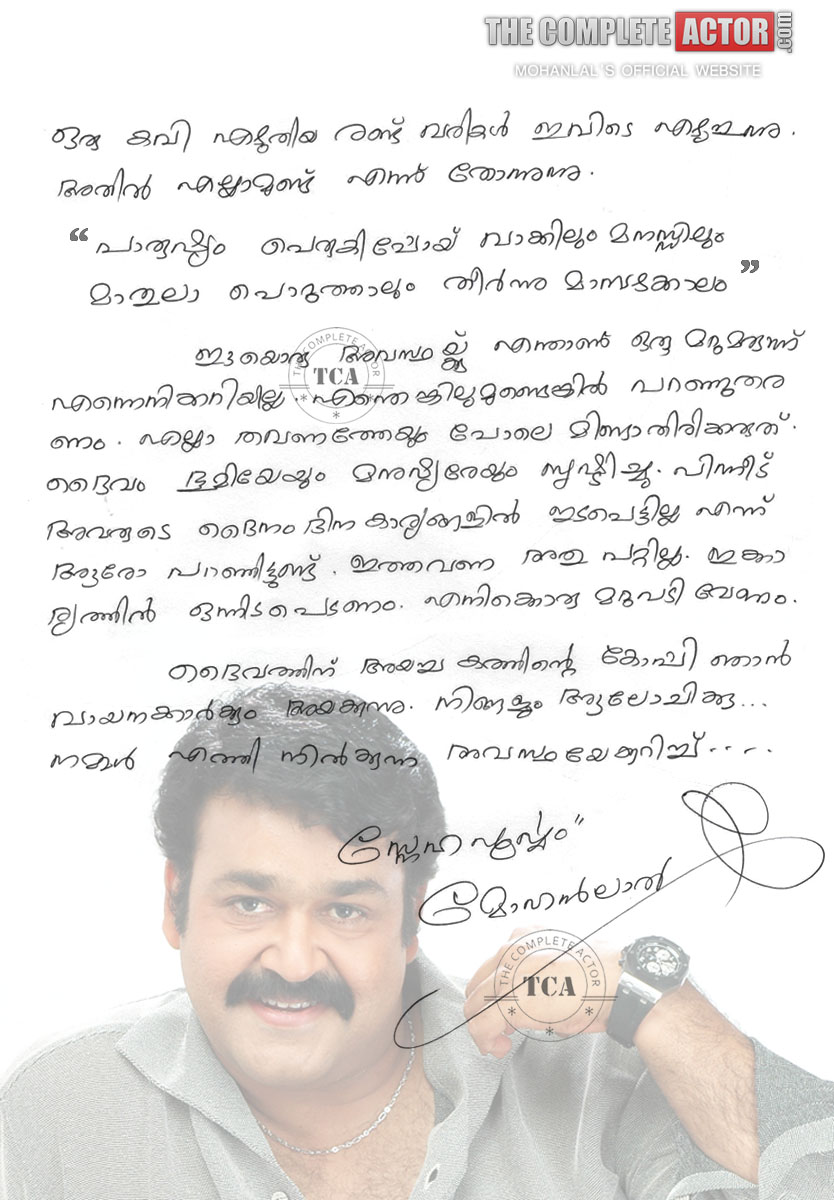 THE COMPLETE ACTOR.com
MOHANLAL'S OFFICIAL WEBSITE
ഒരു കവി എഴുതിയ രണ്ട് വരികൾ ഇവിടെ എഴുതുന്നു.
അതിൽ എല്ലാമുണ്ട് എന്ന് തോന്നുന്നു.
“പാരുഷ്യം പെരുകിപ്പോയ് വാക്കിലും മനസ്സിലും
മാതുലാ പൊറുത്താലും തീർന്നു മാമ്പഴക്കാലം”
ഈയൊരു അവസ്ഥയ്ക്ക് എന്താണ് ഒരു മറുമരുന്ന്
എന്നെനിക്കറിയില്ല. എന്തെങ്കിലുമുണ്ടെങ്കിൽ പറഞ്ഞുതര
ണം. എല്ലാ തവണത്തേയും പോലെ മിണ്ടാതിരിക്കരുത്.
ദൈവം ഭൂമിയേയും മനുഷ്യരേയും സൃഷ്ടിച്ചു. പിന്നീട്
അവരുടെ ദൈനംദിന കാര്യങ്ങളിൽ ഇടപെട്ടില്ല എന്ന്
ആരോ പറഞ്ഞിട്ടുണ്ട്. ഇത്തവണ അതു പറ്റില്ല. ഇക്കാ
ര്യത്തിൽ ഒന്നിടപെടണം. എനിക്കൊരു മറുപടി വേണം.
ദൈവത്തിന് അയച്ച കത്തിന്റെ കോപ്പി ഞാൻ
വായനക്കാർക്കും അയക്കുന്നു. നിങ്ങളും ആലോചിക്കൂ...
നമ്മൾ എത്തി നിൽക്കുന്ന അവസ്ഥയേക്കുറിച്ച്....
സ്നേഹപൂർവ്വം
മോഹൻലാൽ
THE COMPLETE ACTOR
TCA
THE COMPLETE ACTOR
TCA